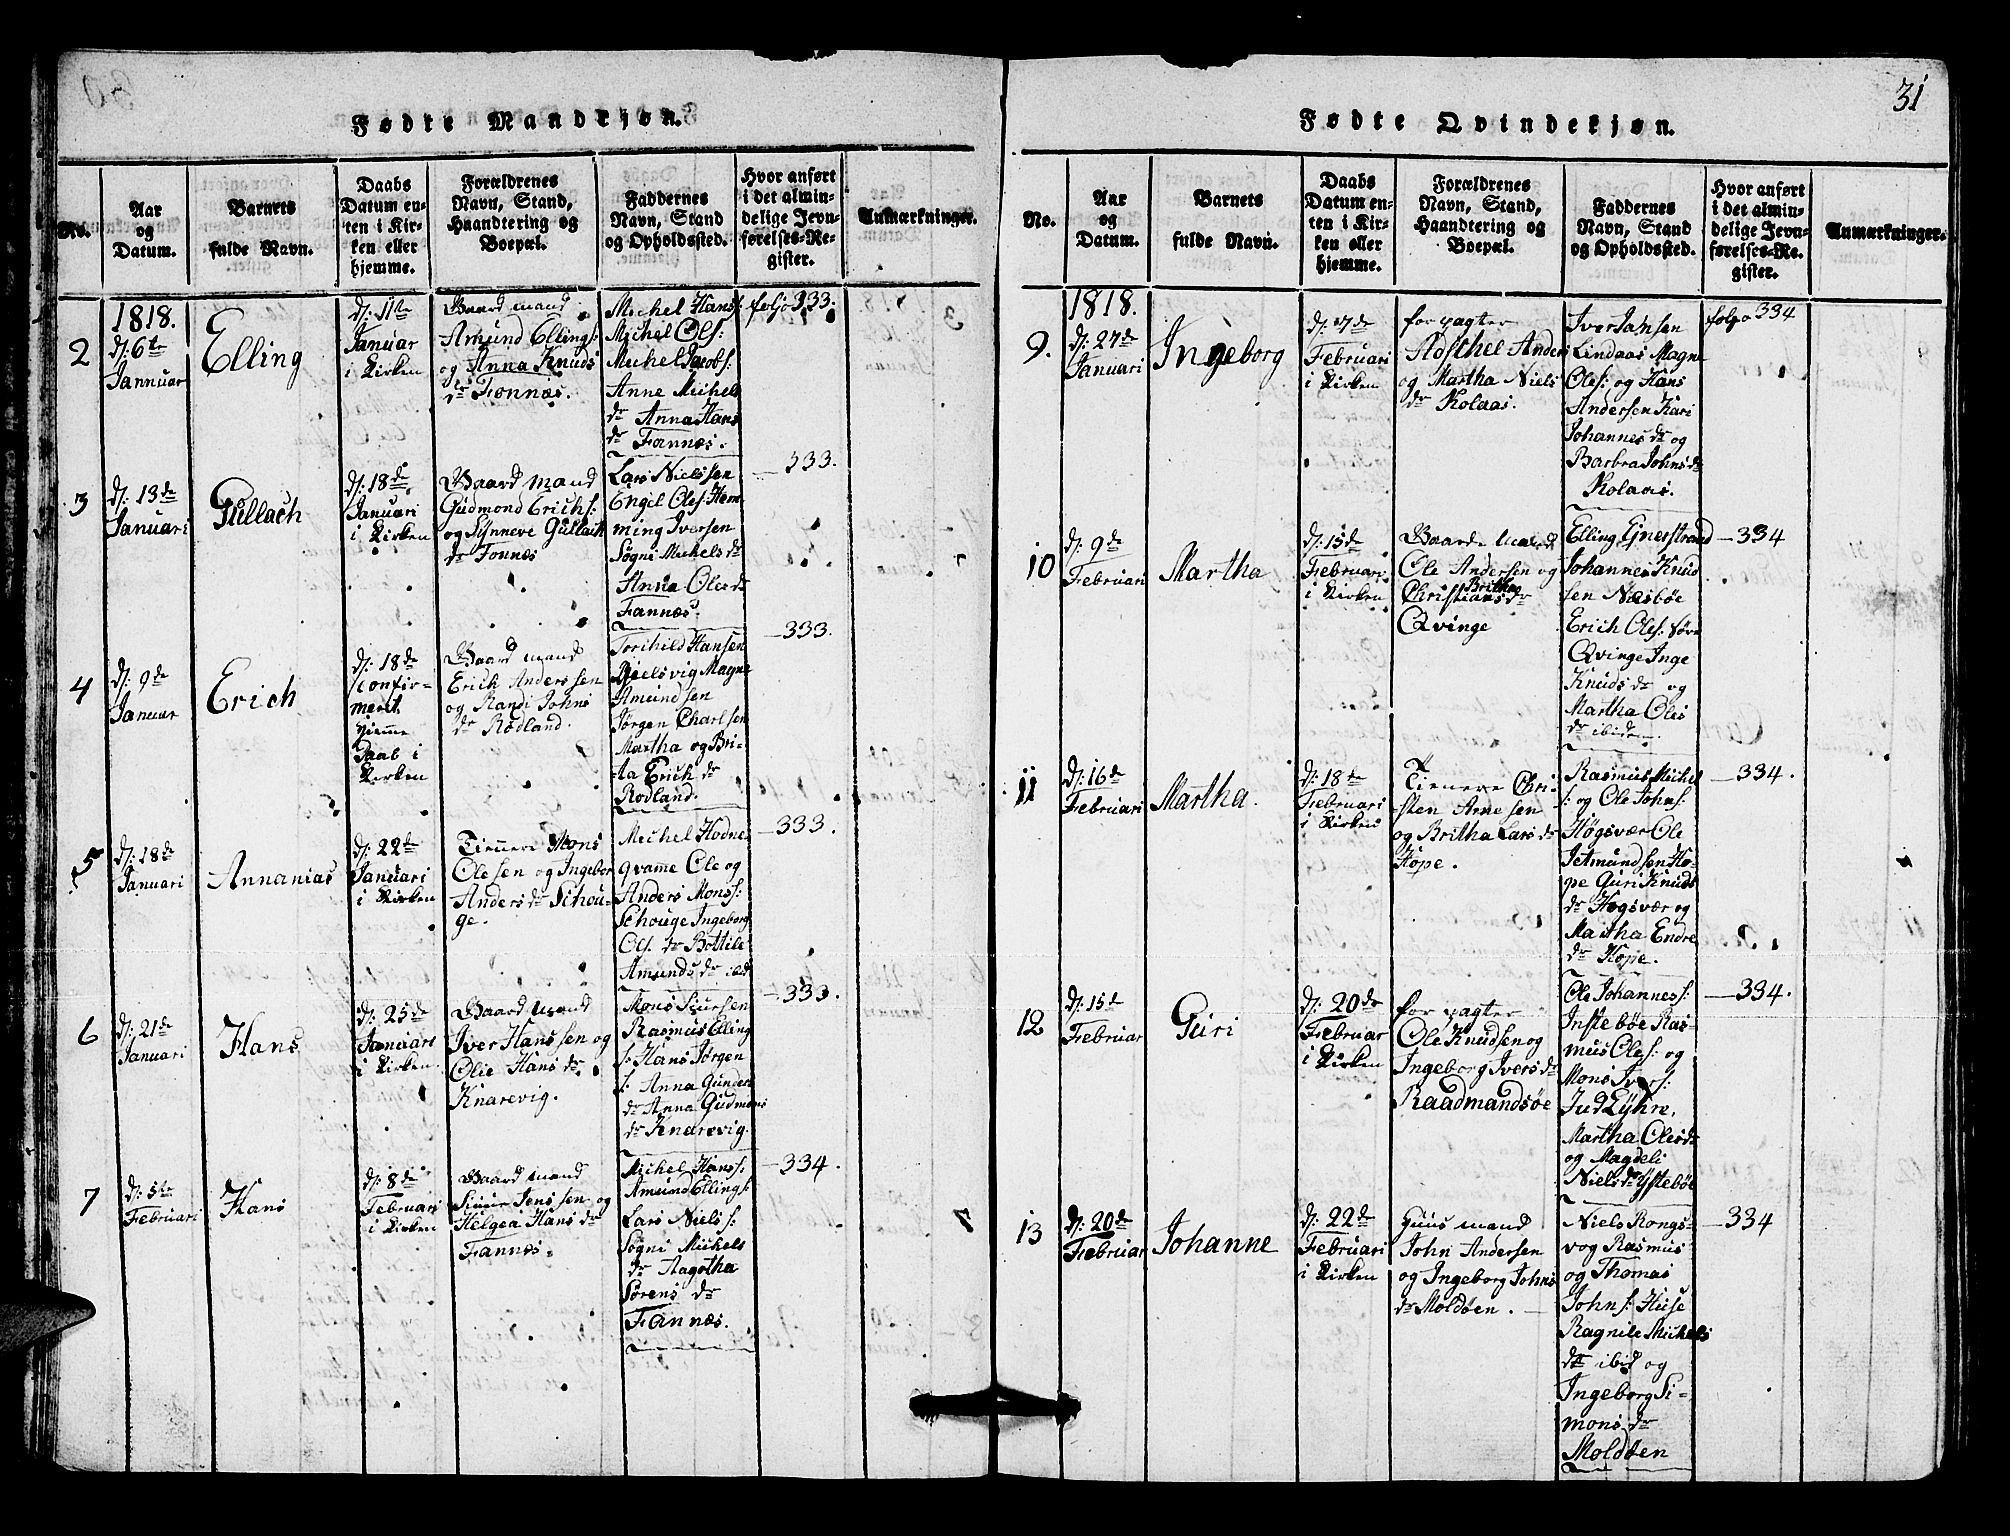 31
Fødte Mandkjøn.
No.
Aar
og
Datum.
Barnets
fulde Navn.
Daabs
Datum en-
ten i Kir-
ken eller
hjemme.
Forældrenes
Navn, Stand,
Haandtering og
Boepæl.
Faddernes
Navn, Stand
og Opholdssted.
Hvor anført
i det almin-
delige Jevn-
førelses-Re-
gister.
Anmærkninger.
2
1818.
d: 6te
Jannuar
Elling
d: 11te
Januar
i Kirken
Gaard mand
Amund Ellings:
og Anna Knuds
dr Fonnæs.
Michel Hans:
Michel Ols:
Michel Jacobs:
Anne Michels
dr Anna Hans
dr Fannæs.
folio 333.
3
d: 13de
Januari
Gullach
d: 18de
Januari
i Kirken
Gaard mand
Gudmond Erichs:
og Synneve Gullach
dr Fonnæs
Lars Nielssen
Engel Oles: Hem-
ming Iversen
Søgni Michels dr
Anna Oles dr
Fannæs.
333.
4
d: 9de
Januar
Erich
d: 18de
confir-
meret
hjemme
Daab i
Kirken
Gaard mand
Erich Anderssen
og Randi Johns
dr Rodland.
Torchild Hansen
Nielsvig Magne
Amundsen
Jørgen Charlsen
Martha og Bri-
ta Erich dr
Rodland.
333.
5
d: 18de
Januari
Annanias
d: 22te
Januari
i Kirken
Tiennere Mons
Olesen og Ingebor
Anders dr Schou-
ge.
Michel Hodne-
qvamme Ole og
Anders Mons:
Schouge Ingeborg
Ols. dr Bottile
Amunds dr
333.
6
d: 21de
Januari
Hans
d: 25de
Januari
i Kirken.
Gaard mand
Iver Hanssen og
Olie Hans dr
Knarevig.
Mons Siursen
Rasmus Elling
s: Hans Jørgen
s: Anna Gunder
dr Anna Gudmons
dr Knarevig.
333.
7
d: 5te
Februari
Hans
d: 8de
Februari
i Kirken
Gaard mand
Simer Jenssen og
Helgea Hans dr
Fannæs.
Michel Hans:
Amund Ellings:
Lars Niels:
Søgni Michels
dr Aagotha
Sørens dr
Fannæs.
334.
Fødte Qvindekjøn.
No.
Aar
og
Datum.
Barnets
fulde Navn.
Daabs
Datum en-
ten i Kir-
ken eller
hjemme.
Forældrenes
Navn, Stand,
Haandtering og
Boepæl.
Faddernes
Navn, Stand
og Opholdssted.
Hvor anført
i det almin-
delige Jevn-
førelses-Re-
gister.
Anmærkninger.
9.
1818.
d: 27de
Januari
Ingeborg
d: 7de
Februari
i Kirken
forpagter
Adschel Anders
og Martha Niels
dr Kolaas.
Iver Jansen
Lindaas Magne
Oles: og Hans
Andersen Kari
Johannes dr og
Barbra Johns dr
Kolaas.
folio 334
10
d: 9de
Februari
Martha
d: 15de
Februari
i Kirken
Gaarde Mand
Ole Andersen og
Britha
Christians dr
Qvinge
Elling Ejnerstrand
Johannes Knud
sen Næsbøe
Erich Oles: Søre
Qvinge Inge
Knuds dr og
Martha Oles
dr ibidem.
334
11
d: 16de
Februari
Martha.
d: 18de
Februari
i Kirken
Tienere Chri-
sten Arnesen
og Britha Lars dr
Hope.
Rasmus Michel
s: og Ole Johns:
Høgsvær Ole
Jetmundsen Ho-
pe Guri Knuds
dr Høgsvær og
Martha Endre
dr Hope.
334.
12
d: 15de
Februar
Guri
d: 20de
Februar
i Kirken
forpagter
Ole Knudsen og
Ingeborg Ivers dr
Raadmandsøe
Ole Johannes:
Instebøe Ras-
mus Oles: og
Mons Ivers:
Judlyhre,
Martha Oles dr
og Magdeli
Niels dr Ystebøe
334.
13
d: 20de
Februar
Johanne
d: 22de
Februari
i Kirken
Huus mand
John Andersen
og Ingeborg Johns
dr Moldøen.
Niels Rongs-
vog Rasmus
og Thomas
Johns: Huse
Ragnile Michels
dr ibid og
Ingeborg Si-
mons dr
Moldøen
334